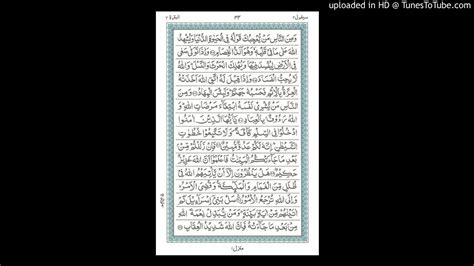 uploaded in HD @ TunesToTube.com
سيقول ٢ ٣٣ البقرة ٢
وَمِنَ النَّاسِ مَنْ يُّعْجِبُكَ قَوْلُهٗ فِى الْحَيٰوةِ الدُّنْيَا وَيُشْهِدُ
اللّٰهَ عَلٰى مَا فِىْ قَلْبِهٖ وَهُوَ اَلَدُّ الْخِصَامِ وَاِذَا تَوَلّٰى سَعٰى
فِى الْاَرْضِ لِيُفْسِدَ فِيْهَا وَيُهْلِكَ الْحَرْثَ وَالنَّسْلَ وَاللّٰهُ
لَا يُحِبُّ الْفَسَادَ وَاِذَا قِيْلَ لَهُ اتَّقِ اللّٰهَ اَخَذَتْهُ
الْعِزَّةُ بِالْاِثْمِ فَحَسْبُهٗ جَهَنَّمُ وَلَبِئْسَ الْمِهَادُ وَمِنَ
النَّاسِ مَنْ يَّشْرِىْ نَفْسَهُ ابْتِغَآءَ مَرْضَاتِ اللّٰهِ وَ
اللّٰهُ رَءُوْفٌ بِالْعِبَادِ يٰۤاَيُّهَا الَّذِيْنَ اٰمَنُوا
ادْخُلُوْا فِى السِّلْمِ كَآفَّةً وَلَا تَتَّبِعُوْا خُطُوٰتِ
الشَّيْطٰنِ اِنَّهٗ لَكُمْ عَدُوٌّ مُّبِيْنٌ فَاِنْ زَلَلْتُمْ مِّنْ
بَعْدِ مَا جَآءَتْكُمُ الْبَيِّنٰتُ فَاعْلَمُوْۤا اَنَّ اللّٰهَ عَزِيْزٌ
حَكِيْمٌ هَلْ يَنْظُرُوْنَ اِلَّاۤ اَنْ يَّاْتِيَهُمُ اللّٰهُ فِىْ
ظُلَلٍ مِّنَ الْغَمَامِ وَالْمَلٰٓئِكَةُ وَقُضِىَ الْاَمْرُ
وَاِلَى اللّٰهِ تُرْجَعُ الْاُمُوْرُ سَلْ بَنِىْۤ اِسْرَآءِيْلَ كَمْ
اٰتَيْنٰهُمْ مِّنْ اٰيَةٍۭ بَيِّنَةٍ وَمَنْ يُّبَدِّلْ نِعْمَةَ اللّٰهِ
مِنْۢ بَعْدِ مَا جَآءَتْهُ فَاِنَّ اللّٰهَ شَدِيْدُ الْعِقَابِ
منزل ا